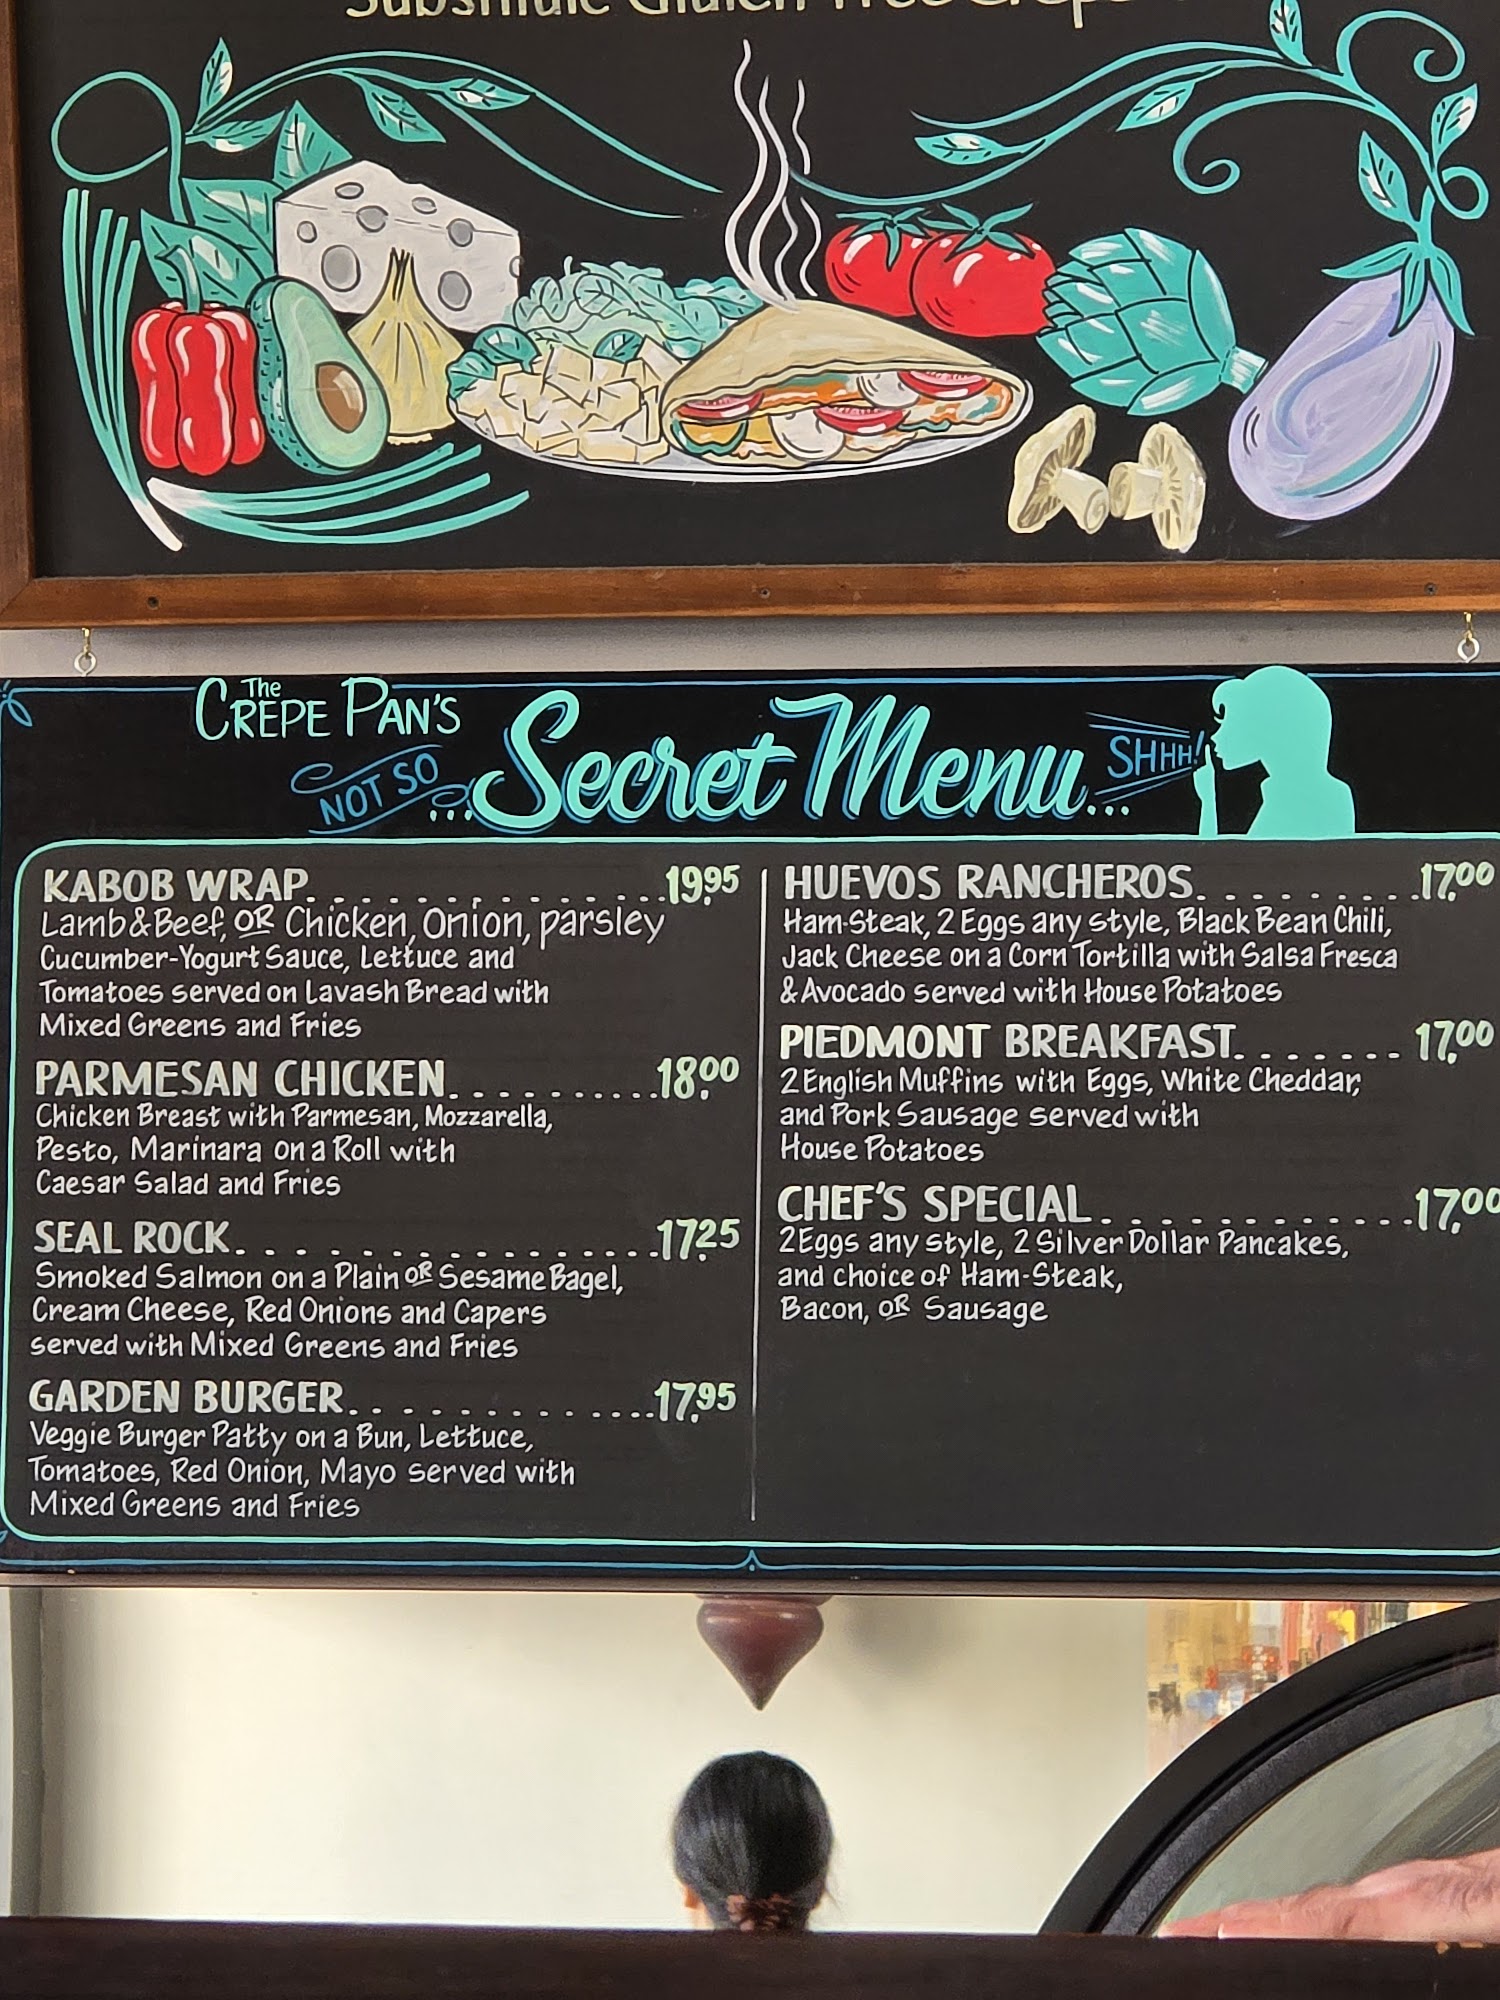 Substitute Gluten Free Crepe
The
CREPE PAN'S
NOT SO
...Secret Menu...
SHHH!
KABOB WRAP..............19.95
Lamb & Beef, OR Chicken, Onion, parsley
Cucumber-Yogurt Sauce, Lettuce and
Tomatoes served on Lavash Bread with
Mixed Greens and Fries
PARMESAN CHICKEN..........18.00
Chicken Breast with Parmesan, Mozzarella,
Pesto, Marinara on a Roll with
Caesar Salad and Fries
SEAL ROCK................17.25
Smoked Salmon on a Plain OR Sesame Bagel,
Cream Cheese, Red Onions and Capers
served with Mixed Greens and Fries
GARDEN BURGER............17.95
Veggie Burger Patty on a Bun, Lettuce,
Tomatoes, Red Onion, Mayo served with
Mixed Greens and Fries
HUEVOS RANCHEROS.........17.00
Ham-Steak, 2 Eggs any style, Black Bean Chili,
Jack Cheese on a Corn Tortilla with Salsa Fresca
& Avocado served with House Potatoes
PIEDMONT BREAKFAST.......17.00
2 English Muffins with Eggs, White Cheddar,
and Pork Sausage served with
House Potatoes
CHEF'S SPECIAL............17.00
2 Eggs any style, 2 Silver Dollar Pancakes,
and choice of Ham-Steak,
Bacon, OR Sausage